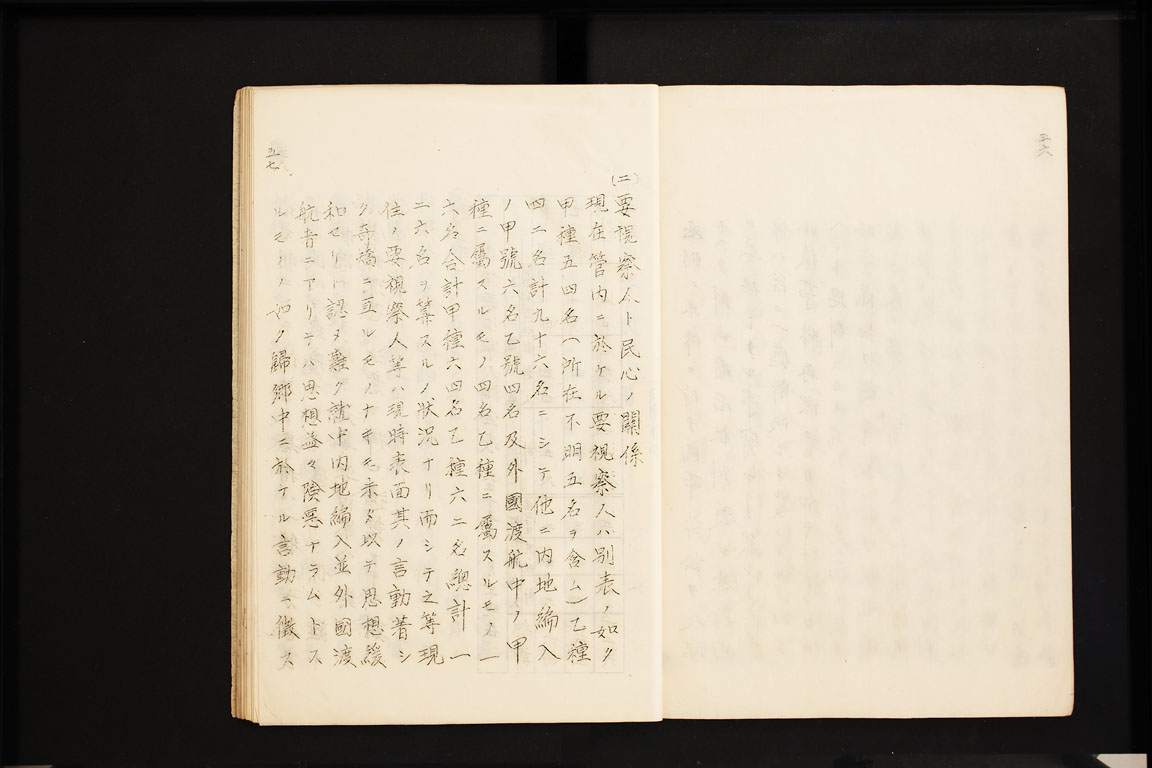 五六
(二)
要視察人ト民心ノ關係
現在管内ニ於ケル要視察人ハ別表ノ如ク
甲種五四名(所在不明五名ヲ含ム)乙種
四二名計九十六名ニシテ他ニ内地編入
ノ甲號六名乙號四名及外國渡航中ノ甲
種ニ屬スルモノ四名乙種ニ屬スルモノ一
六名合計甲種六四名乙種六二名總計一
二六名ヲ算スルノ狀況ナリ而シテ之等現
住ノ要視察人等ハ現時表面其ノ言動著シ
ク奇矯ニ亘ルモノナキモ未タ以テ思想緩
和セリト認メ難ク就中内地編入並外國渡
航者ニアリテハ思想益々險惡ナラムトス
ルモノノ如ク歸鄕中ニ於ケル言動ニ徵ス
五七